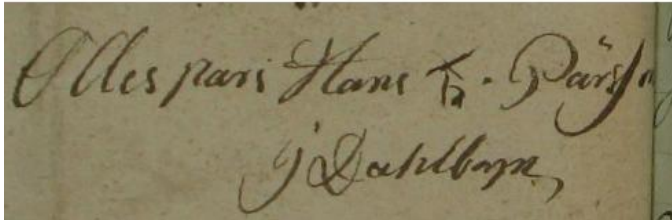 Olles pars Hans Pärss
J Dahlbyn